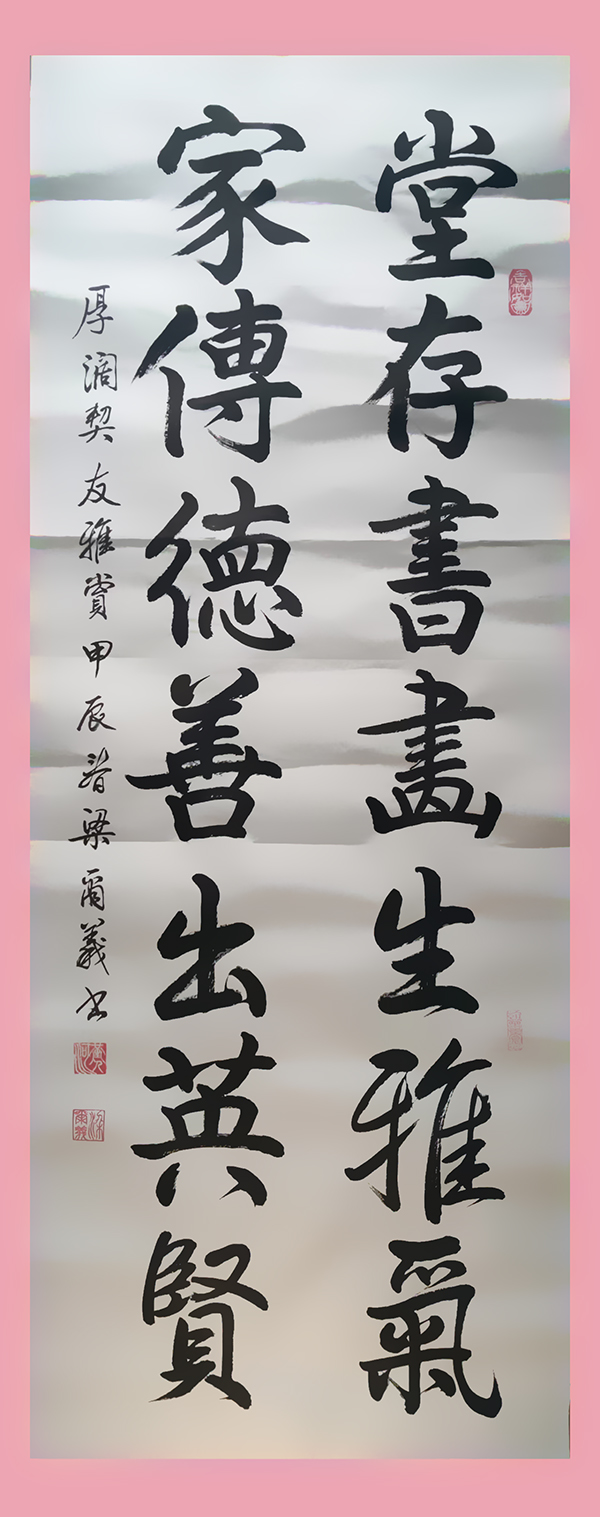 堂存書畫生雅氣
家傳德善出英賢
厚澗契友雅賞甲辰春梁爾義書